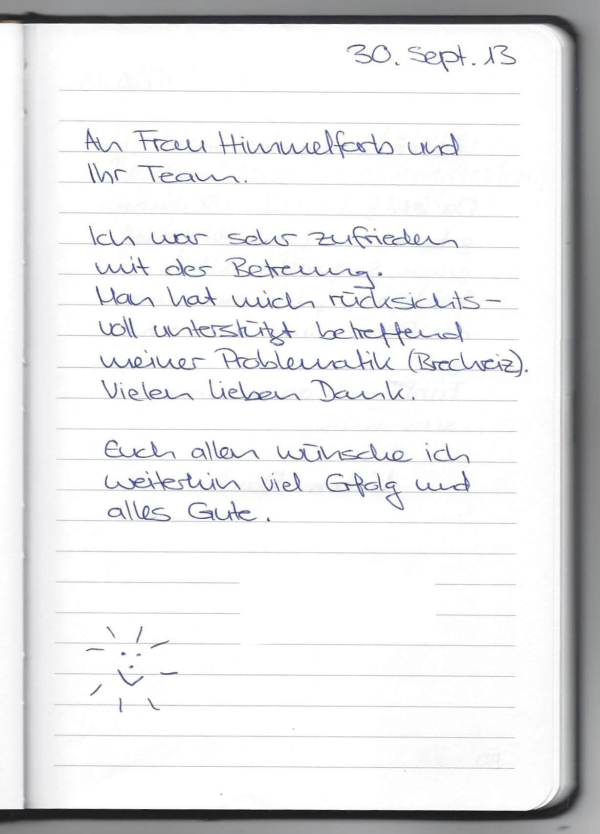 30. Sept. 13
An Frau Himmelfarb und
Ihr Team.
Ich war sehr zufrieden
mit der Betreuung.
Man hat mich rücksichts-
voll unterstützt betreffend
meiner Problematik (Brechreiz).
Vielen lieben Dank.
Euch allen wünsche ich
weiterhin viel Erfolg und
alles Gute.